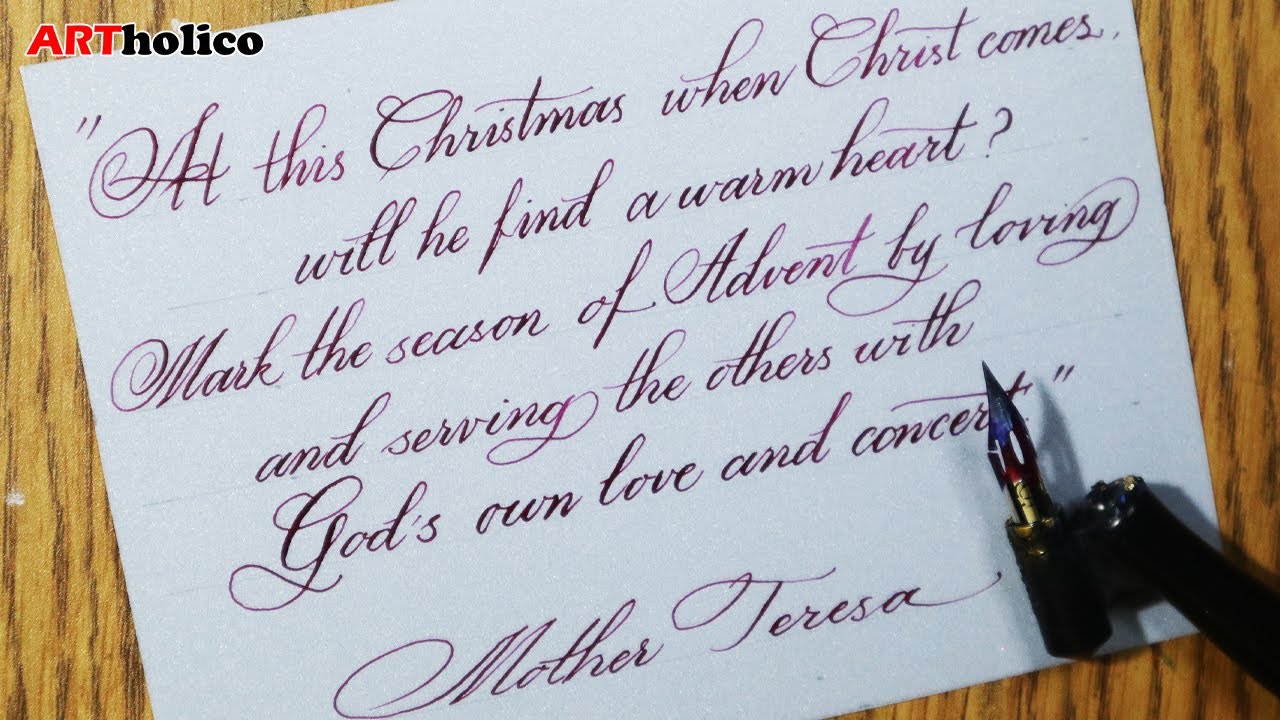 ARTholico
"At this Christmas when Christ comes,
will he find a warm heart?
Mark the season of Advent by loving
and serving the others with
God's own love and concert."
Mother Teresa